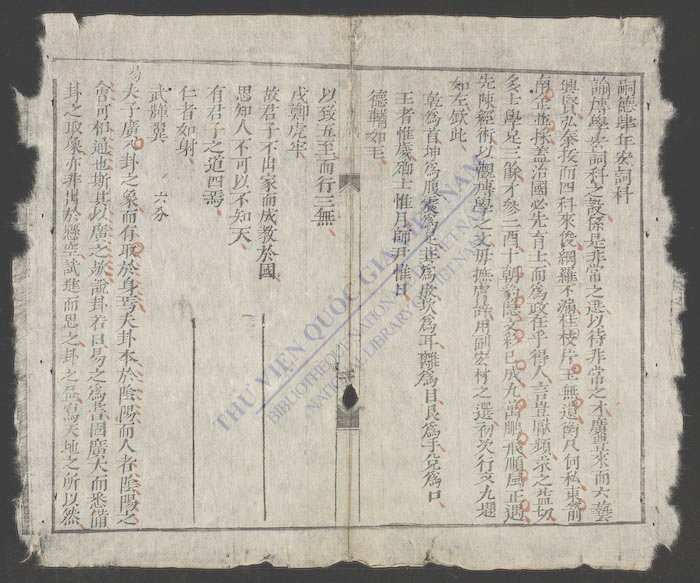 嗣德肆年宏詞科
諭博學宏詞科之設係是非常之選以待非常之才廣畢業而六藝
興賢弘泰交而四科來俊網羅不漏桂枝片玉無遺尚只何私東箭
南金並採蓋治國必先育士而為政在乎得人言豈厭頻求之益切
多士學足三餘才參二酉十朝豹隱文彩已成九萬鵬飛順風正遇
先陳經術以觀博學之文毋摭膚辞用副宏材之選初次行文九題
如左欽此
乾為首坤為腹震為足巽為股坎為耳離為目艮為手兌為口
王者惟歲卿士惟月師尹惟日
德輶如毛
以致五至而行三無
戍鄭虎牢
故君子不出家而成教於國
思知人不可以不知天
有君子之道四焉
仁者如射
武輝翼 六分
易夫子廣八卦之象而有取於身焉夫卦本於陰陽而人者陰陽之
會可相通也斯其以廣之於說卦若曰易之為書固廣大而悉備
卦之取象亦非出於懸空試進而思之卦之並寫天地之所以然
THƯ VIỆN QUỐC GIA VIỆT NAM
BIBLIOTHÈQUE NATIONALE DU VIETNAM
NATIONAL LIBRARY OF VIETNAM